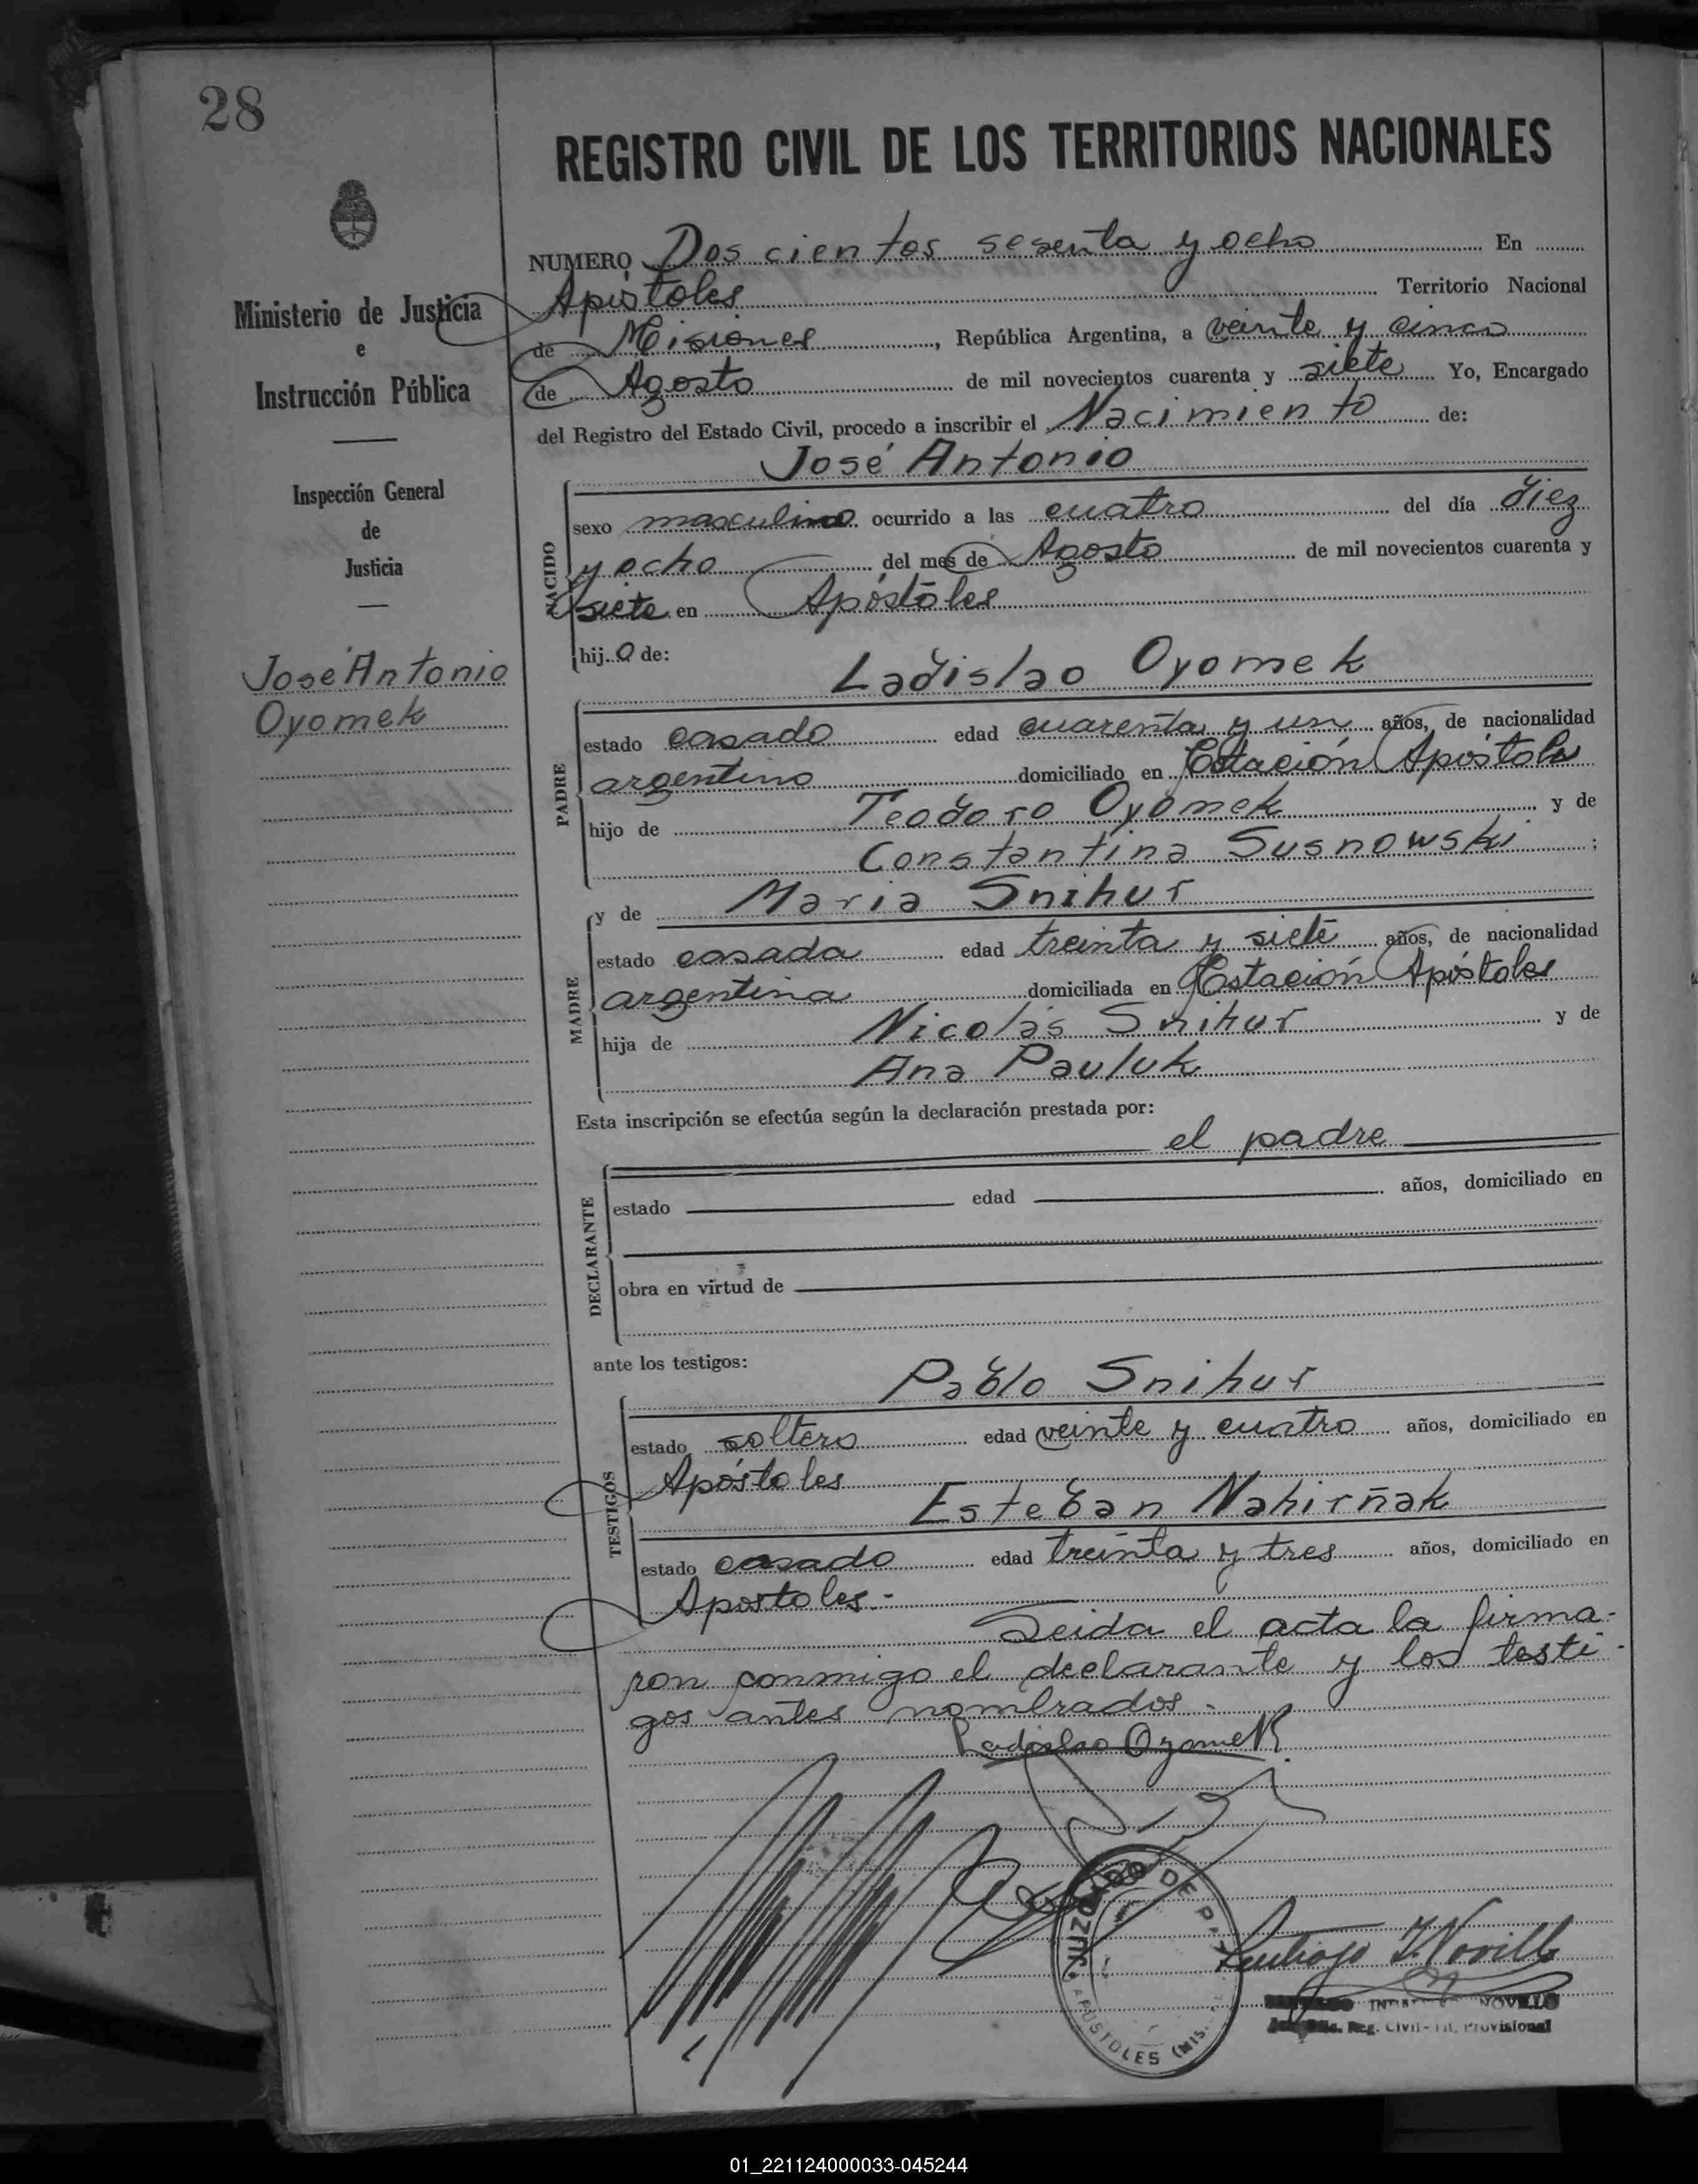 28
REGISTRO CIVIL DE LOS TERRITORIOS NACIONALES
Ministerio de Justicia
e
Instrucción Pública
Inspección General
de
Justicia
José Antonio
Oyomek
NUMERO Dos cientos sesenta y ocho En
Apóstoles Territorio Nacional
de Misiones, República Argentina, a veinte y cinco
de Agosto de mil novecientos cuarenta y siete Yo, Encargado
del Registro del Estado Civil, procedo a inscribir el Nacimiento de:
José Antonio
NACIDO
sexo masculino ocurrido a las cuatro del día diez
y ocho del mes de Agosto de mil novecientos cuarenta y
siete en Apóstoles
hijo de:
Ladislao Oyomek
PADRE
estado casado edad cuarenta y un años, de nacionalidad
argentino domiciliado en Estación Apóstoles
hijo de Teodoro Oyomek y de
Constantina Susnowski ;
MADRE
y de Maria Snihur
estado casada edad treinta y siete años, de nacionalidad
argentina domiciliada en Estación Apóstoles
hija de Nicolás Snihur y de
Ana Pauluk
Esta inscripción se efectúa según la declaración prestada por:
el padre
DECLARANTE
estado edad años, domiciliado en
obra en virtud de
ante los testigos:
Pablo Snihur
TESTIGOS
estado soltero edad veinte y cuatro años, domiciliado en
Apóstoles
Esteban Nahirñak
estado casado edad treinta y tres años, domiciliado en
Apostoles.-
Leida el acta la firma-
ron conmigo el declarante y los testi-
gos antes nombrados.-
Ladislao Oyomek
JUZGADO DE PAZ
APOSTOLES (MIS.
Santiago I. Novillo
NOVILLO
Reg. Civil - Tit. Provisional
01_221124000033-045244